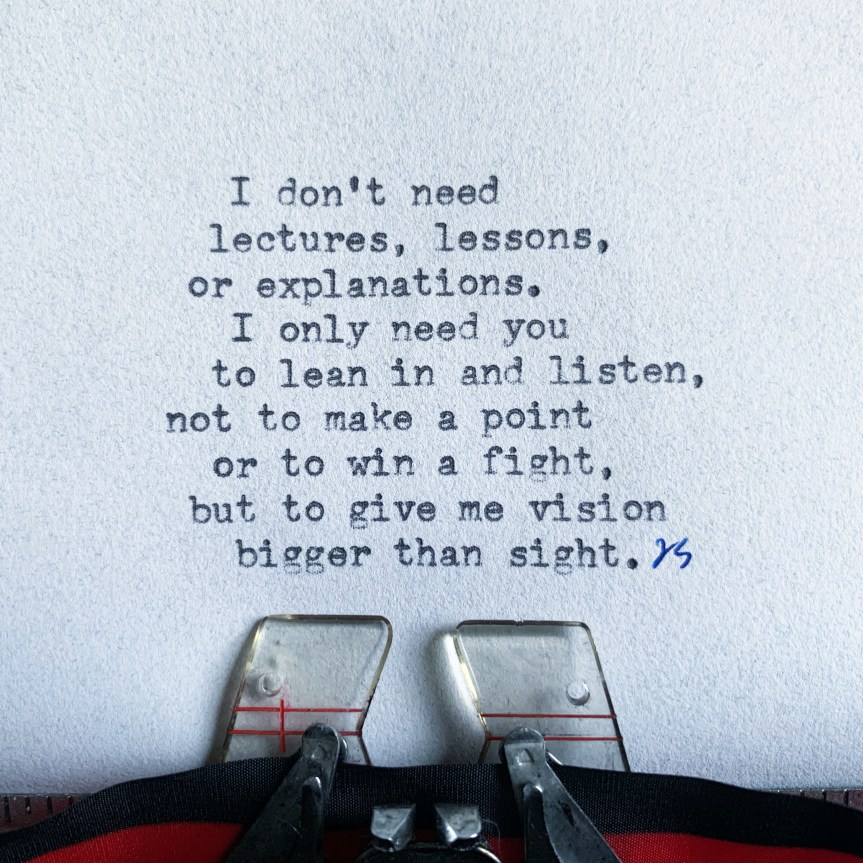 I don't need
lectures, lessons,
or explanations.
I only need you
to lean in and listen,
not to make a point
or to win a fight,
but to give me vision
bigger than sight.